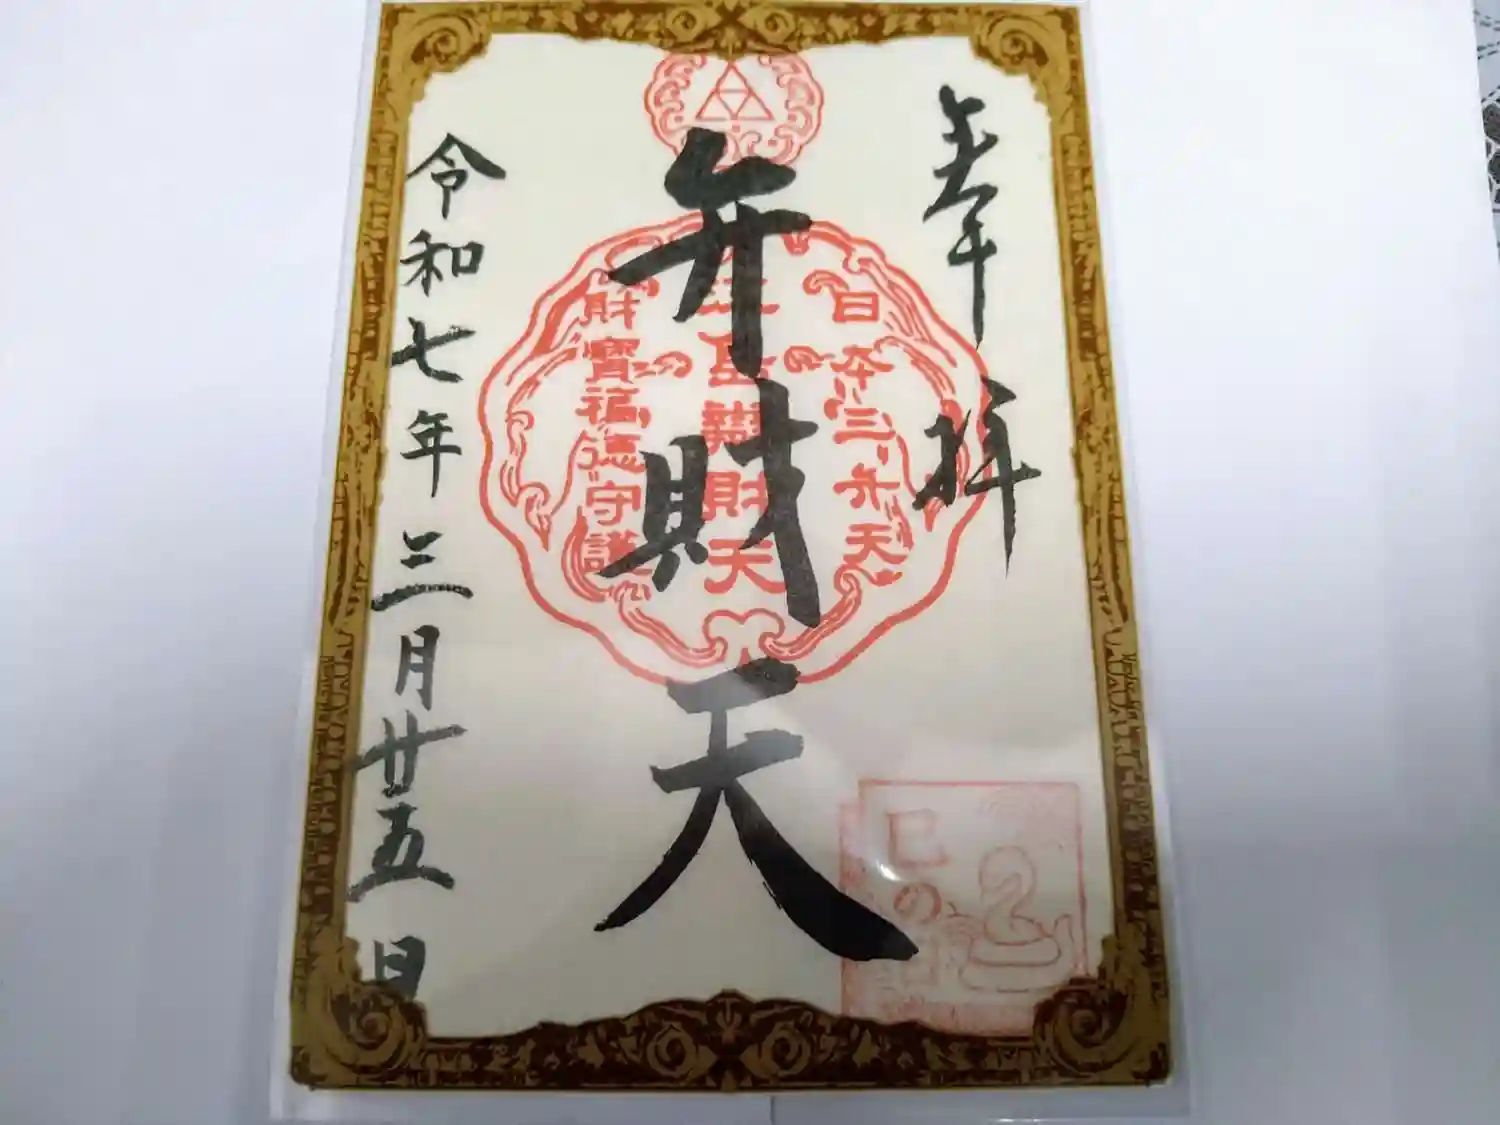 奉拝
日本三弁天
江島辯財天
財寳福徳守護
弁財天
巳の日
令和七年三月廿五日